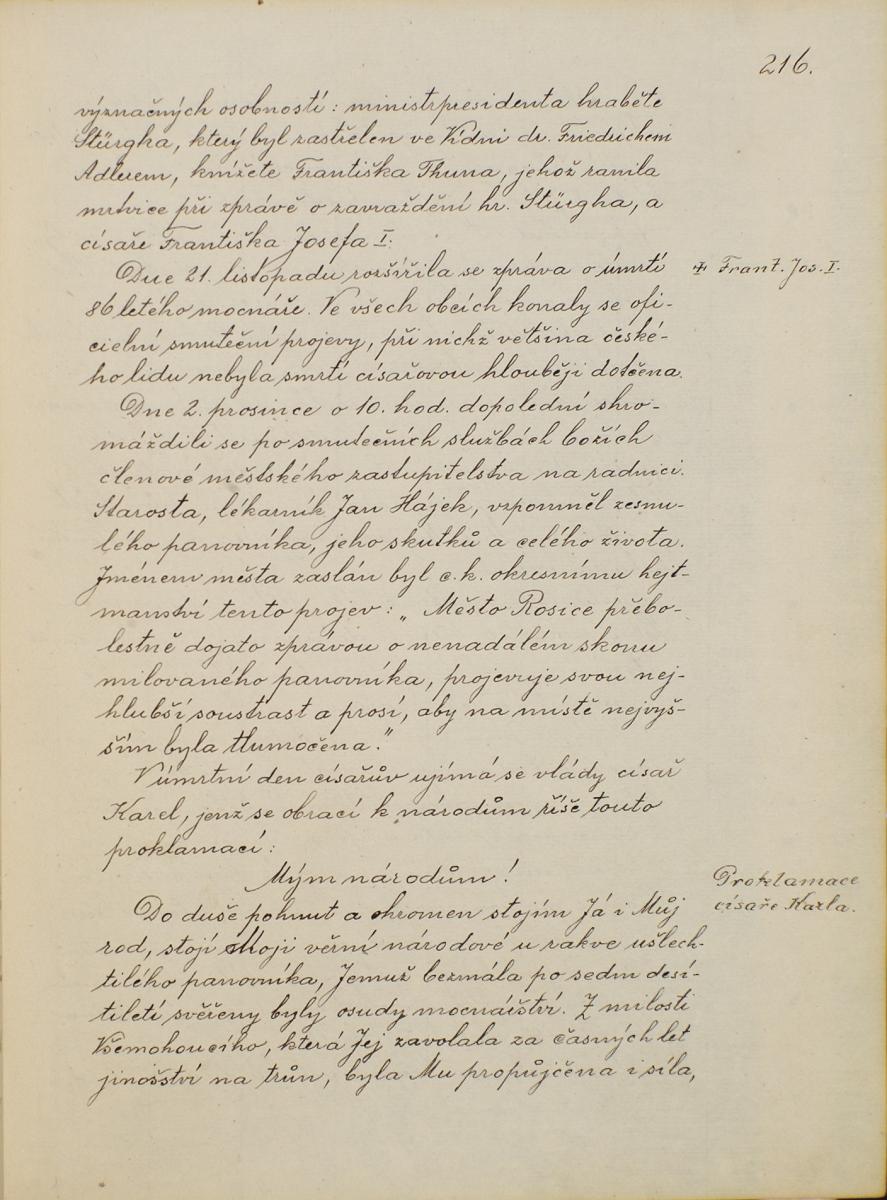 216.
význačných osobností: ministrpresidenta hraběte
Stürgka, který byl zastřelen ve Vídni dr. Friedrichem
Adlerem, knížete Františka Thuna, jehož ranila
mrtvice při zprávě o zavraždění hr. Stürgha, a
císaře Františka Josefa I.
Dne 21. listopadu rozšířila se zpráva o úmrtí
‡ Frant. Jos. I.
86 letého mocnáře. Ve všech obcích konaly se ofi-
cielní smuteční projevy, při nichž většina české-
ho lidu nebyla smrtí císařovou hlouběji dotčena.
Dne 2. prosince o 10. hod. dopolední shro-
máždili se po smutečních službách božích
členové městského zastupitelstva na radnici.
Starosta, lékárník Jan Hájek, vzpomněl zesnu-
lého panovníka, jeho skutků a celého života.
Jménem města zaslán byl c. k. okresnímu hejt-
manství tento projev: „Město Rosice přebo-
lestně dojato zprávou o nenadálém skonu
milovaného panovníka, projevuje svou nej-
hlubší soustrast a prosí, aby na místě nejvyš-
ším byla tlumočena."
V úmrtní den císařův ujímá se vlády císař
Karel, jenž se obrací k národům říše touto
proklamací:
Mým národům!
Proklamace
císaře Karla.
Do duše pohnut a ohromen stojím Já i Můj
rod, stojí Moji věrní národové u rakve ušlech-
tilého panovníka, Jemuž bezmála po sedm desí-
tiletí svěřeny byly osudy mocnářství. Z milosti
Všemohoucího, která Jej zavolala za časných let
jinošství na trůn, byla Mu propůjčena i síla,